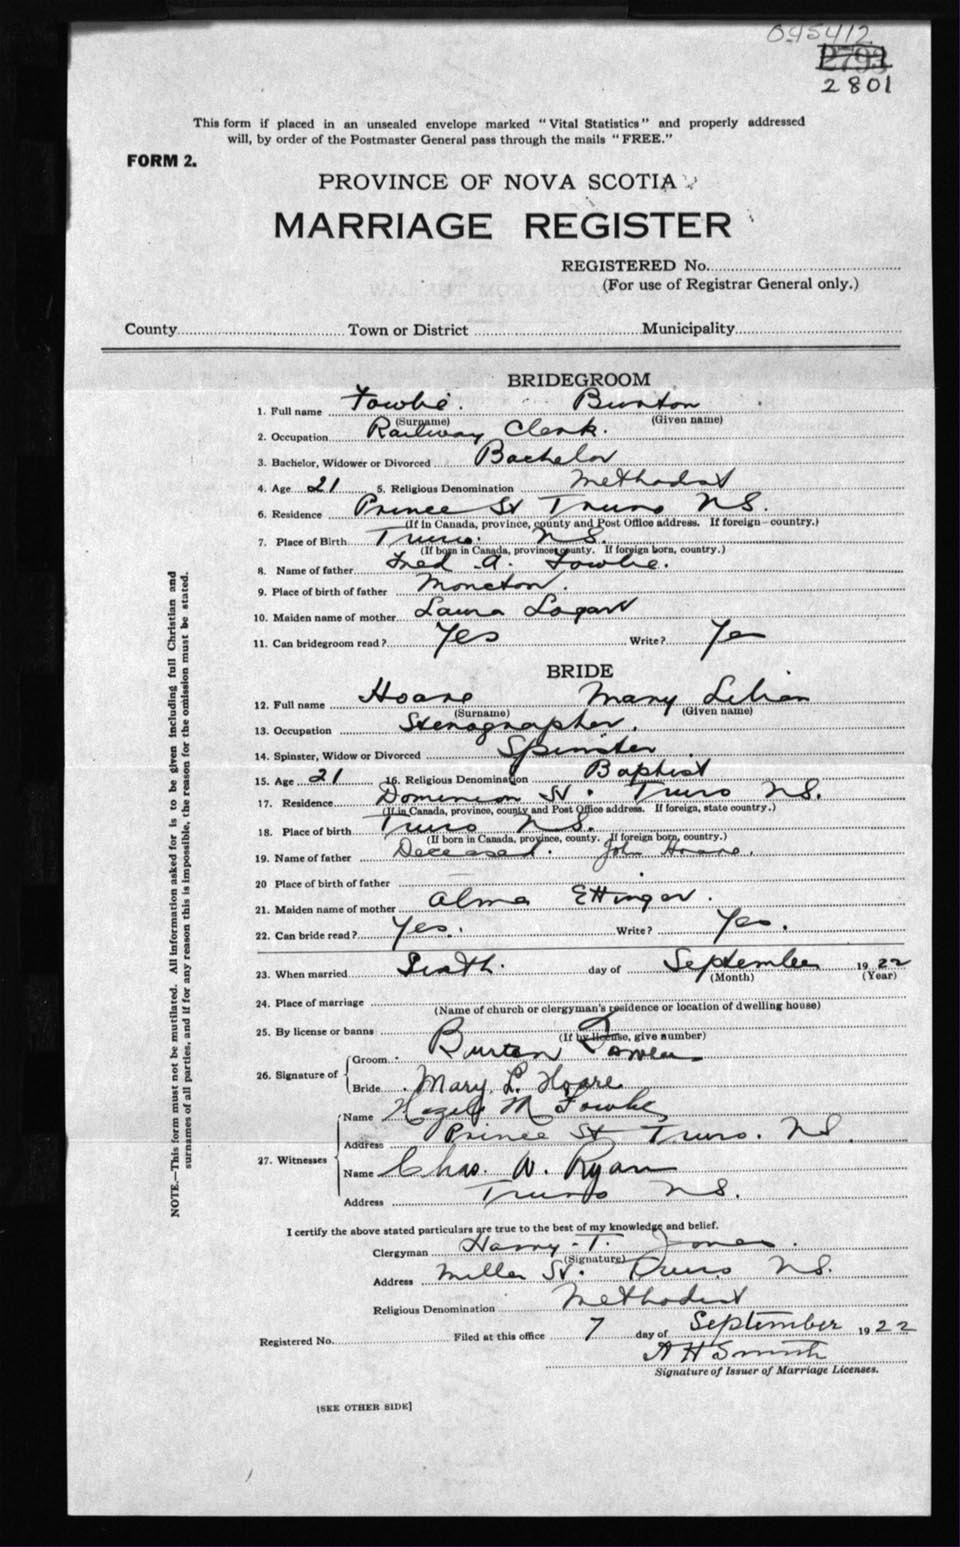 045412
2793
2801
This form if placed in an unsealed envelope marked "Vital Statistics" and properly addressed
will, by order of the Postmaster General pass through the mails "FREE."
FORM 2.
PROVINCE OF NOVA SCOTIA
MARRIAGE REGISTER
REGISTERED No.
(For use of Registrar General only.)
County Town or District Municipality
BRIDEGROOM
1. Full name Fowlie. Burton
(Surname) (Given name)
2. Occupation Railway Clerk.
3. Bachelor, Widower or Divorced Bachelor
4. Age 21 5. Religious Denomination Methodist
6. Residence Prince St Truro N.S.
(If in Canada, province, county and Post Office address. If foreign—country.)
7. Place of Birth Truro. N.S.
(If born in Canada, province, county. If foreign born, country.)
8. Name of father Fred A. Fowlie.
9. Place of birth of father Moncton.
10. Maiden name of mother Laura
11. Can bridegroom read? Yes Write? Yes
BRIDE
12. Full name Hoare Mary Lilian
(Surname) (Given name)
13. Occupation Stenographer.
14. Spinster, Widow or Divorced Spinster
15. Age 21 16. Religious Denomination Baptist
17. Residence Dominion St. Truro N.S.
(If in Canada, province, county and Post Office address. If foreign, state country.)
18. Place of birth Truro N.S.
(If born in Canada, province, county. If foreign born, country.)
19. Name of father Deceased. John Hoare.
20 Place of birth of father
21. Maiden name of mother Alma Ettinger.
22. Can bride read? Yes. Write? Yes.
23. When married Sixth. day of September 1922
(Month) (Year)
24. Place of marriage
(Name of church or clergyman's residence or location of dwelling house)
25. By license or banns
(If by license, give number)
26. Signature of
Groom Burton
Bride Mary L. Hoare
27. Witnesses
Name Hazel M Fowlie
Address Prince St Truro. N.S.
Name Chas. W. Ryan
Address Truro N.S.
I certify the above stated particulars are true to the best of my knowledge and belief.
Clergyman Harry T. Jones.
(Signature)
Address Miller St. Truro N.S.
Religious Denomination Methodist
Registered No. Filed at this office 7 day of September 1922
A H Smith
Signature of Issuer of Marriage Licenses.
[SEE OTHER SIDE]
NOTE.—This form must not be mutilated. All information asked for is to be given including full Christian and
surnames of all parties, and if for any reason this is impossible, the reason for the omission must be stated.